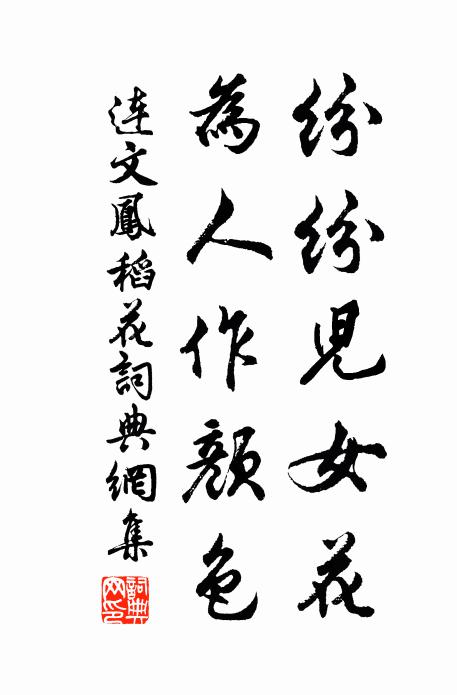 紛紛兒女花
為人作顏色
連文鳳稻花詞典網集
詞典
网印